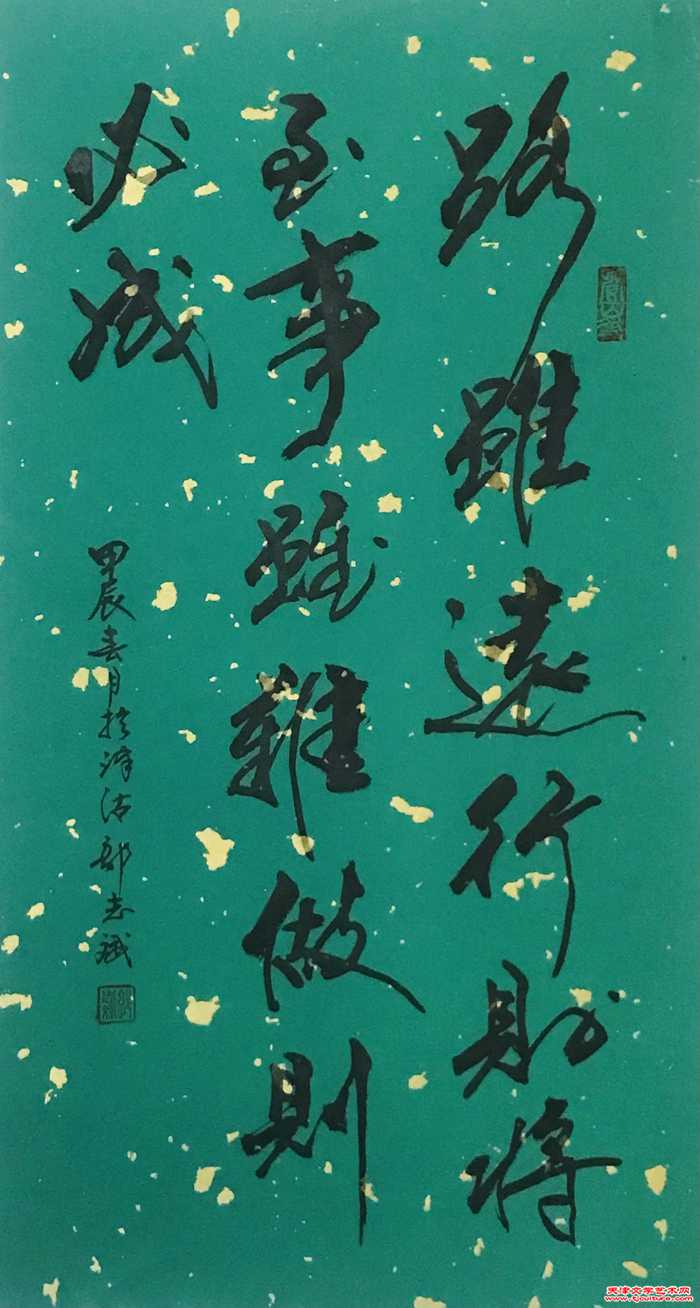 路雖遠行則將
至事雖難做則
必成
甲辰春月於津沽郭志斌
天津文学艺术网
www.tjculture.com